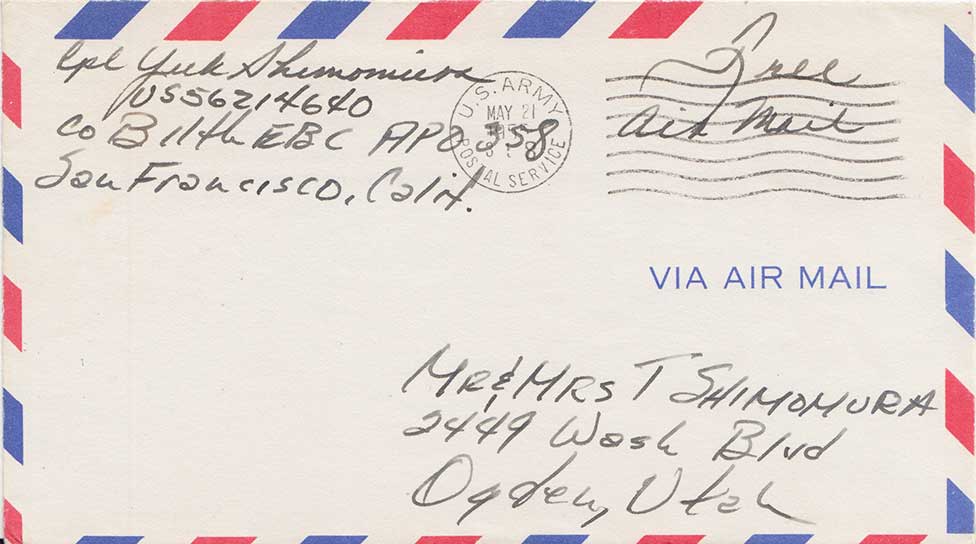 Cpl Yuk Shimomura
US56214640
Co B 11th EBC APO 358
San Francisco, Calif.
U.S. ARMY
MAY 21
POSTAL SERVICE
Free
Air Mail
VIA AIR MAIL
MR & MRS T SHIMOMURA
2449 Wash Blvd
Ogden, Utah